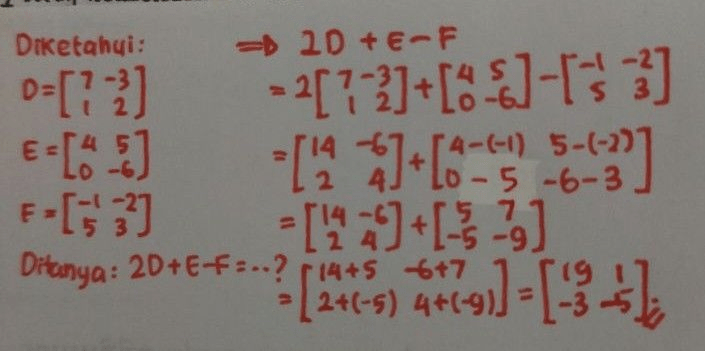 Diketahui:
D = [7 -3
1 2]
E = [4 5
0 -6]
F = [-1 -2
5 3]
Ditanya: 2D+E-F = ...?
⇒ 2D + E - F
= 2[7 -3
1 2] + [4 5
0 -6] - [-1 -2
5 3]
= [14 -6
2 4] + [4-(-1) 5-(-2)
0 - 5 -6-3]
= [14 -6
2 4] + [5 7
-5 -9]
= [14+5 -6+7
2+(-5) 4+(-9)] = [19 1
-3 -5]